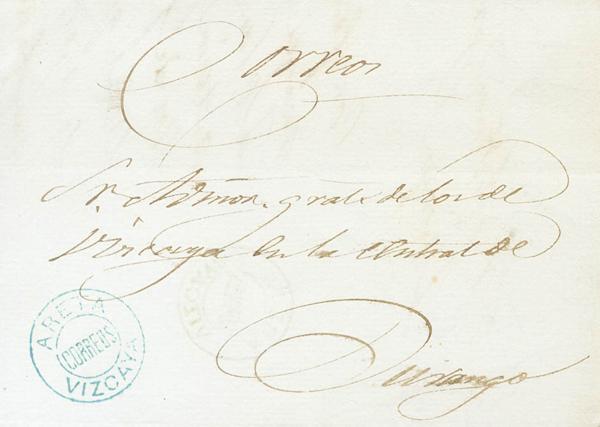 Correos
Sr. Admor. gral. de los de
Vizcaya en la central de
Durango
ARETA
CORREOS
VIZCAYA